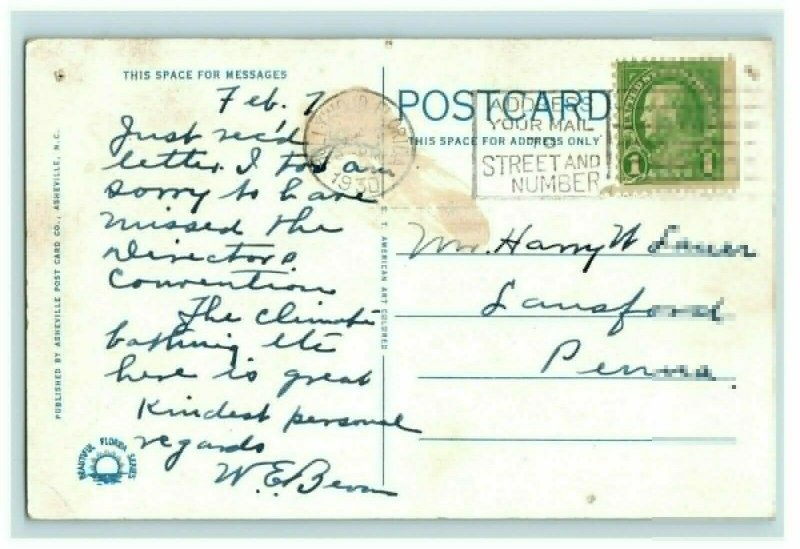 THIS SPACE FOR MESSAGES
Feb. 7
Just rec'd
letter. I too am
sorry to have
missed the
Directors
Convention
The climate
bathing etc
here is great
Kindest personal
regards
W. E. Bevan
POSTCARD
THIS SPACE FOR ADDRESS ONLY
FLORIDA
1930
ADDRESS
YOUR MAIL
TO
STREET AND
NUMBER
1 1
Mr. Harry W Lauer
Lansford
Penna.
PUBLISHED BY ASHEVILLE POST CARD CO., ASHEVILLE, N.C.
C. T. AMERICAN ART COLORED
BEAUTIFUL FLORIDA SERIES